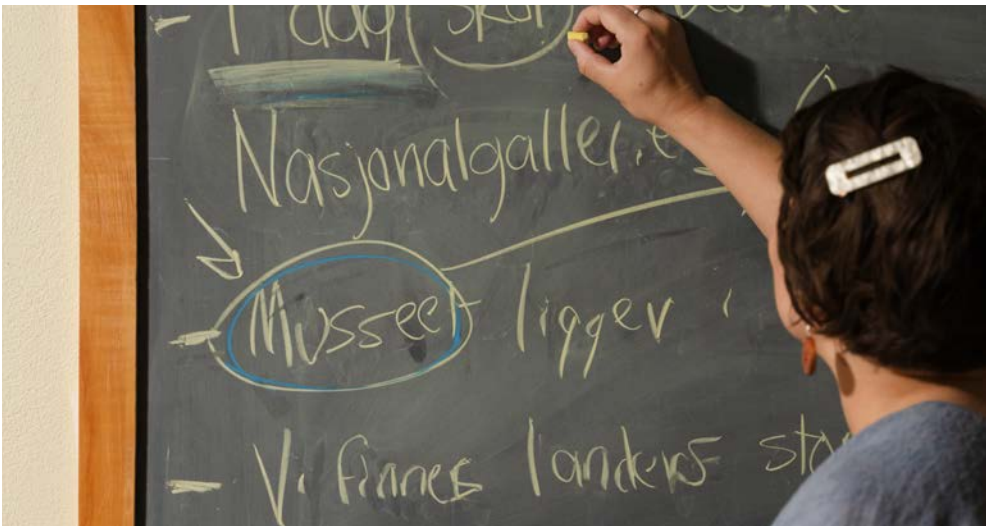 - I dag skal
Nasjonalgalleri
- Musseet ligger i
- Vi finner landets